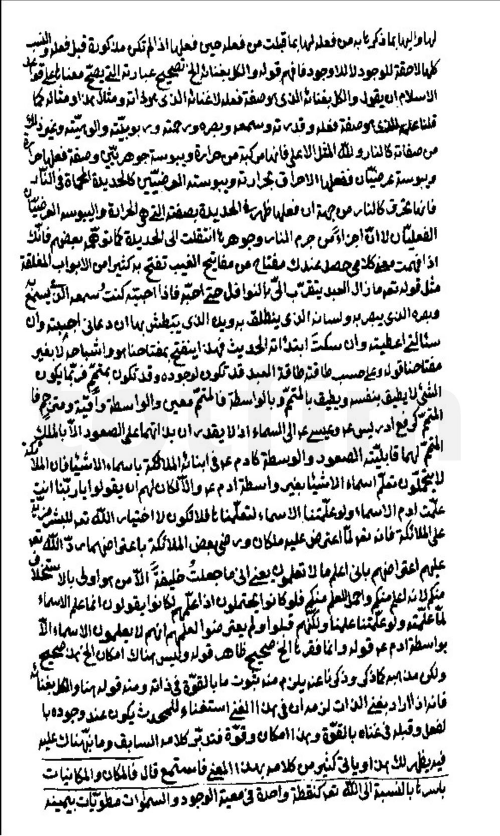 لها والبها بما ذكرنا به من فعله لها بما قبلت من فعله حين فعلها اذ لم تكن مذكورة قبل فعله والنسب
كلها لاحقة للوجود لا للاوجود فافهم قوله والكل بغنائه الخ تصحيح عبارته التى يصح معناها على قواعد
الاسلام ان يقول والكل بغنائه الذى هو صفة فعله لا غنائه الذى هو ذاته ومثال هذا ومثاله كما
قلنا علمه الذى هو صفة فعله وقدرته وسمعه وبصره ورحمته وربوبيته والوهيته وغير ذلك
من صفاته كالنار ولله المثل الاعلى فانها مركبة من حرارة ويبوسة جوهريتين وصفة فعلها حرارة
ويبوسة عرضيتان ففعلها الاحراق بحرارته ويبوسته العرضيتين كالحديدة المحماة فى النار
فانها تحرق كالنار من جهة ان فعلها ظهر فى الحديدة بصفته التى هى الحرارة واليبوسة العرضيتان
الفعليتان لا ان اجزاء من جرم النار وجوهرها انتقلت الى الحديدة كما توهمه بعضهم فانك
اذا فهمت معنى كلامى حصل عندك مفتاح من مفاتيح الغيب تفتح به كثيرا من الابواب المغلقة
مثل قوله تعالى ما زال العبد يتقرب الىّ بالنوافل حتى احبه فاذا احببته كنت سمعه الذى يسمع به
وبصره الذى يبصر به ولسانه الذى ينطق به ويده الذى يبطش بها ان دعانى اجبته وان
سئالنى اعطيته وان سكت ابتدأته الحديث فهذا ينفتح بمفتاحنا هو واشباهه لا بغير
مفتاحنا قوله وعلى حسب طاقة طاقة العبد قد تكون لوجوده وقد تكون بمتمم فربما يكون
الشئ لا يطيق بنفسه ويطيق بالمتمم وبالواسطة فالمتمم معين والواسطة واقية ومترجم فا
المتمم كرفع ادريس ع وعيسى ع الى السماء اذ لا يقدر ان بذاتهما على الصعود الا بالملك
المتمم لهما قابلية الصعود والوسطة كادم ع فى انبائه الملائكة باسماء الاشياء فان الملائكة
لا يتحملون تعلم اسماء الاشياء بغير واسطة ادم ع والا لكان لهم ان يقولوا يا ربنا انت
علمت ادم الاسماء ولو علمتنا الاسماء لتعلمنا فلا تكون لاختيار الله تعالى للبشر مزية
على الملائكة فانه تعالى لما اعترض عليه ملكان ورضى بعض الملائكة باعتراضهما رد الله تعالى
عليهم اعتراضهم بانى اعلم ما لا تعلمون يعنى انى ما جعلت خليفة الا من هو اولى بالاستخلاف
منكم لانه اعلم منكم واحمل للعلم منكم فلو كانوا يحتملون اذا علمهم لكانوا يقولون انما علم الاسماء
لما علمته ولو علمتنا علمنا ولكنهم قبلوا ولم يعترضوا لعلمهم انهم لا يعلمون الاسماء الا
بواسطة ادم ع قوله وانما فقرنا الخ صحيح ظاهر قوله وليس هناك امكان الخ هذا صحيح
ولكن مذهبه كما ذكر وذكرنا عنه يلزم منه ثبوت ما بالقوة فى ذاته ومنه قوله هنا والكل بغنائه
فانه اذا اراد بغنى الذات لزمه ان فى هذا الغنى استغناء للمحدث يكون عند وجوده با
لفعل وقبله فى غناه بالقوة وهذا امكان وقوة فتدبر كلامه السابق وما نبهناك عليه
فيه يظهر لك هذا وياتى كثير من كلامه بهذا المعنى فاستمع قال فالمكان والمكانيات
باسرها بالنسبة الى الله تعالى كنقطة واحدة فى معية الوجود والسموات مطويات بيمينه